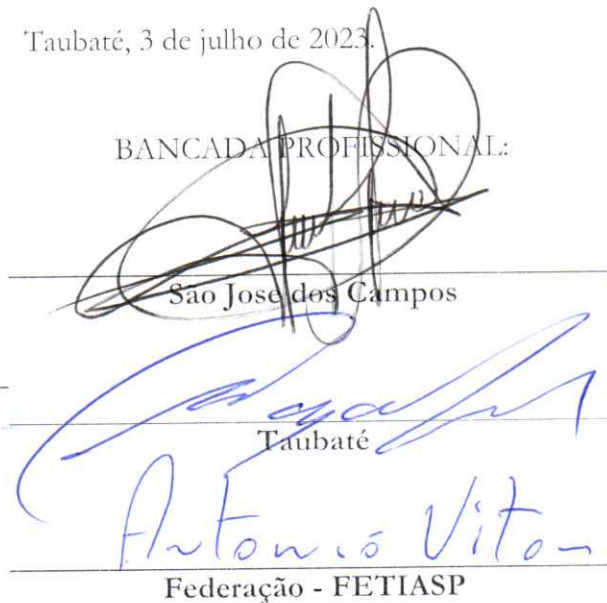 Taubaté, 3 de julho de 2023.
BANCADA PROFISSIONAL:
São Jose dos Campos
Taubaté
Antonio Vitor
Federação - FETIASP